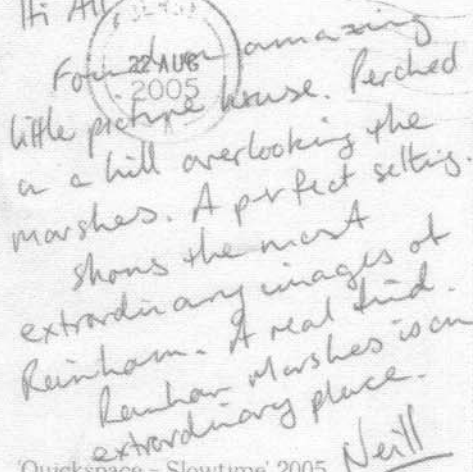 Hi All
Found an amazing
22 AUG
2005
little picture house. Perched
on a hill overlooking the
marshes. A perfect setting.
shows the most
extrordinary images of
Rainham. A real find.
Rainham Marshes is an
extrordinary place.
'Quickspace – Slowtime' 2005
Neill